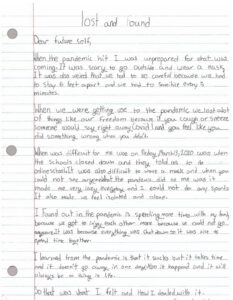 lost and found
Dear future self,
When the pandemic hit I was unprepared for what was
coming. It was scary to go outside and wear a mask.
It was also weird that we had to be so careful because we had
to stay 6 feet apart and we had to sanitize every 5
minutes.
When we were getting use to the pandemic we lost a lot
of things like our freedom because if you cough or sneeze
someone would say right away covid and you feel like you
did something wrong when you didn't.
What was difficult for me was on Friday March 13, 2020 was when
the schools closed down and they told us to do
online school. It was also difficult to wear a mask and when you
could not see anyone. What the pandemic did to me was it
made me very lazy and I could not do any sports
It also made me feel isolated and alone.
I found out in the pandemic is spending more time with my family
because we got to each other more because we could not go
anywhere. It was because everything was shut down so it was nice to
spend time together.
I learned from the pandemic is that it sucks but it takes time
and it doesn't go away in one day. It happened and it will
always be in my life.
So that was what I felt and how I dealed with it.